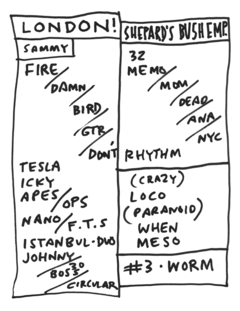 LONDON!
SAMMY
FIRE/
DAMN/
BIRD/
GTR/
DON'T
TESLA
ICKY
APES/OPS
NANO/F.T.S
ISTANBUL-DUO
JOHNNY/
BOSS/
CIRCULAR
SHEPARD'S BUSH EMP.
32
MEMO/
MOM/
DEAD/
ANA/
NYC
RHYTHM
(CRAZY)
LOCO
(PARANOID)
WHEN
MESO
#3·WORM